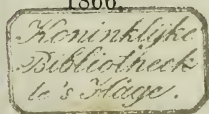 1866.
Koninklijke
Bibliotheek
te's Hage.